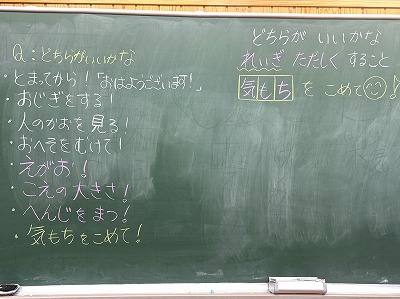 Q：どちらがいいかな
・とまってから！「おはようございます！」
・おじぎをする！
・人のかおを見る！
・おへそをむけて！
・えがお！
・こえの大きさ！
・へんじをまつ！
・気もちをこめて！
どちらが いいかな
れいぎ ただしく すること
気もち を こめて！